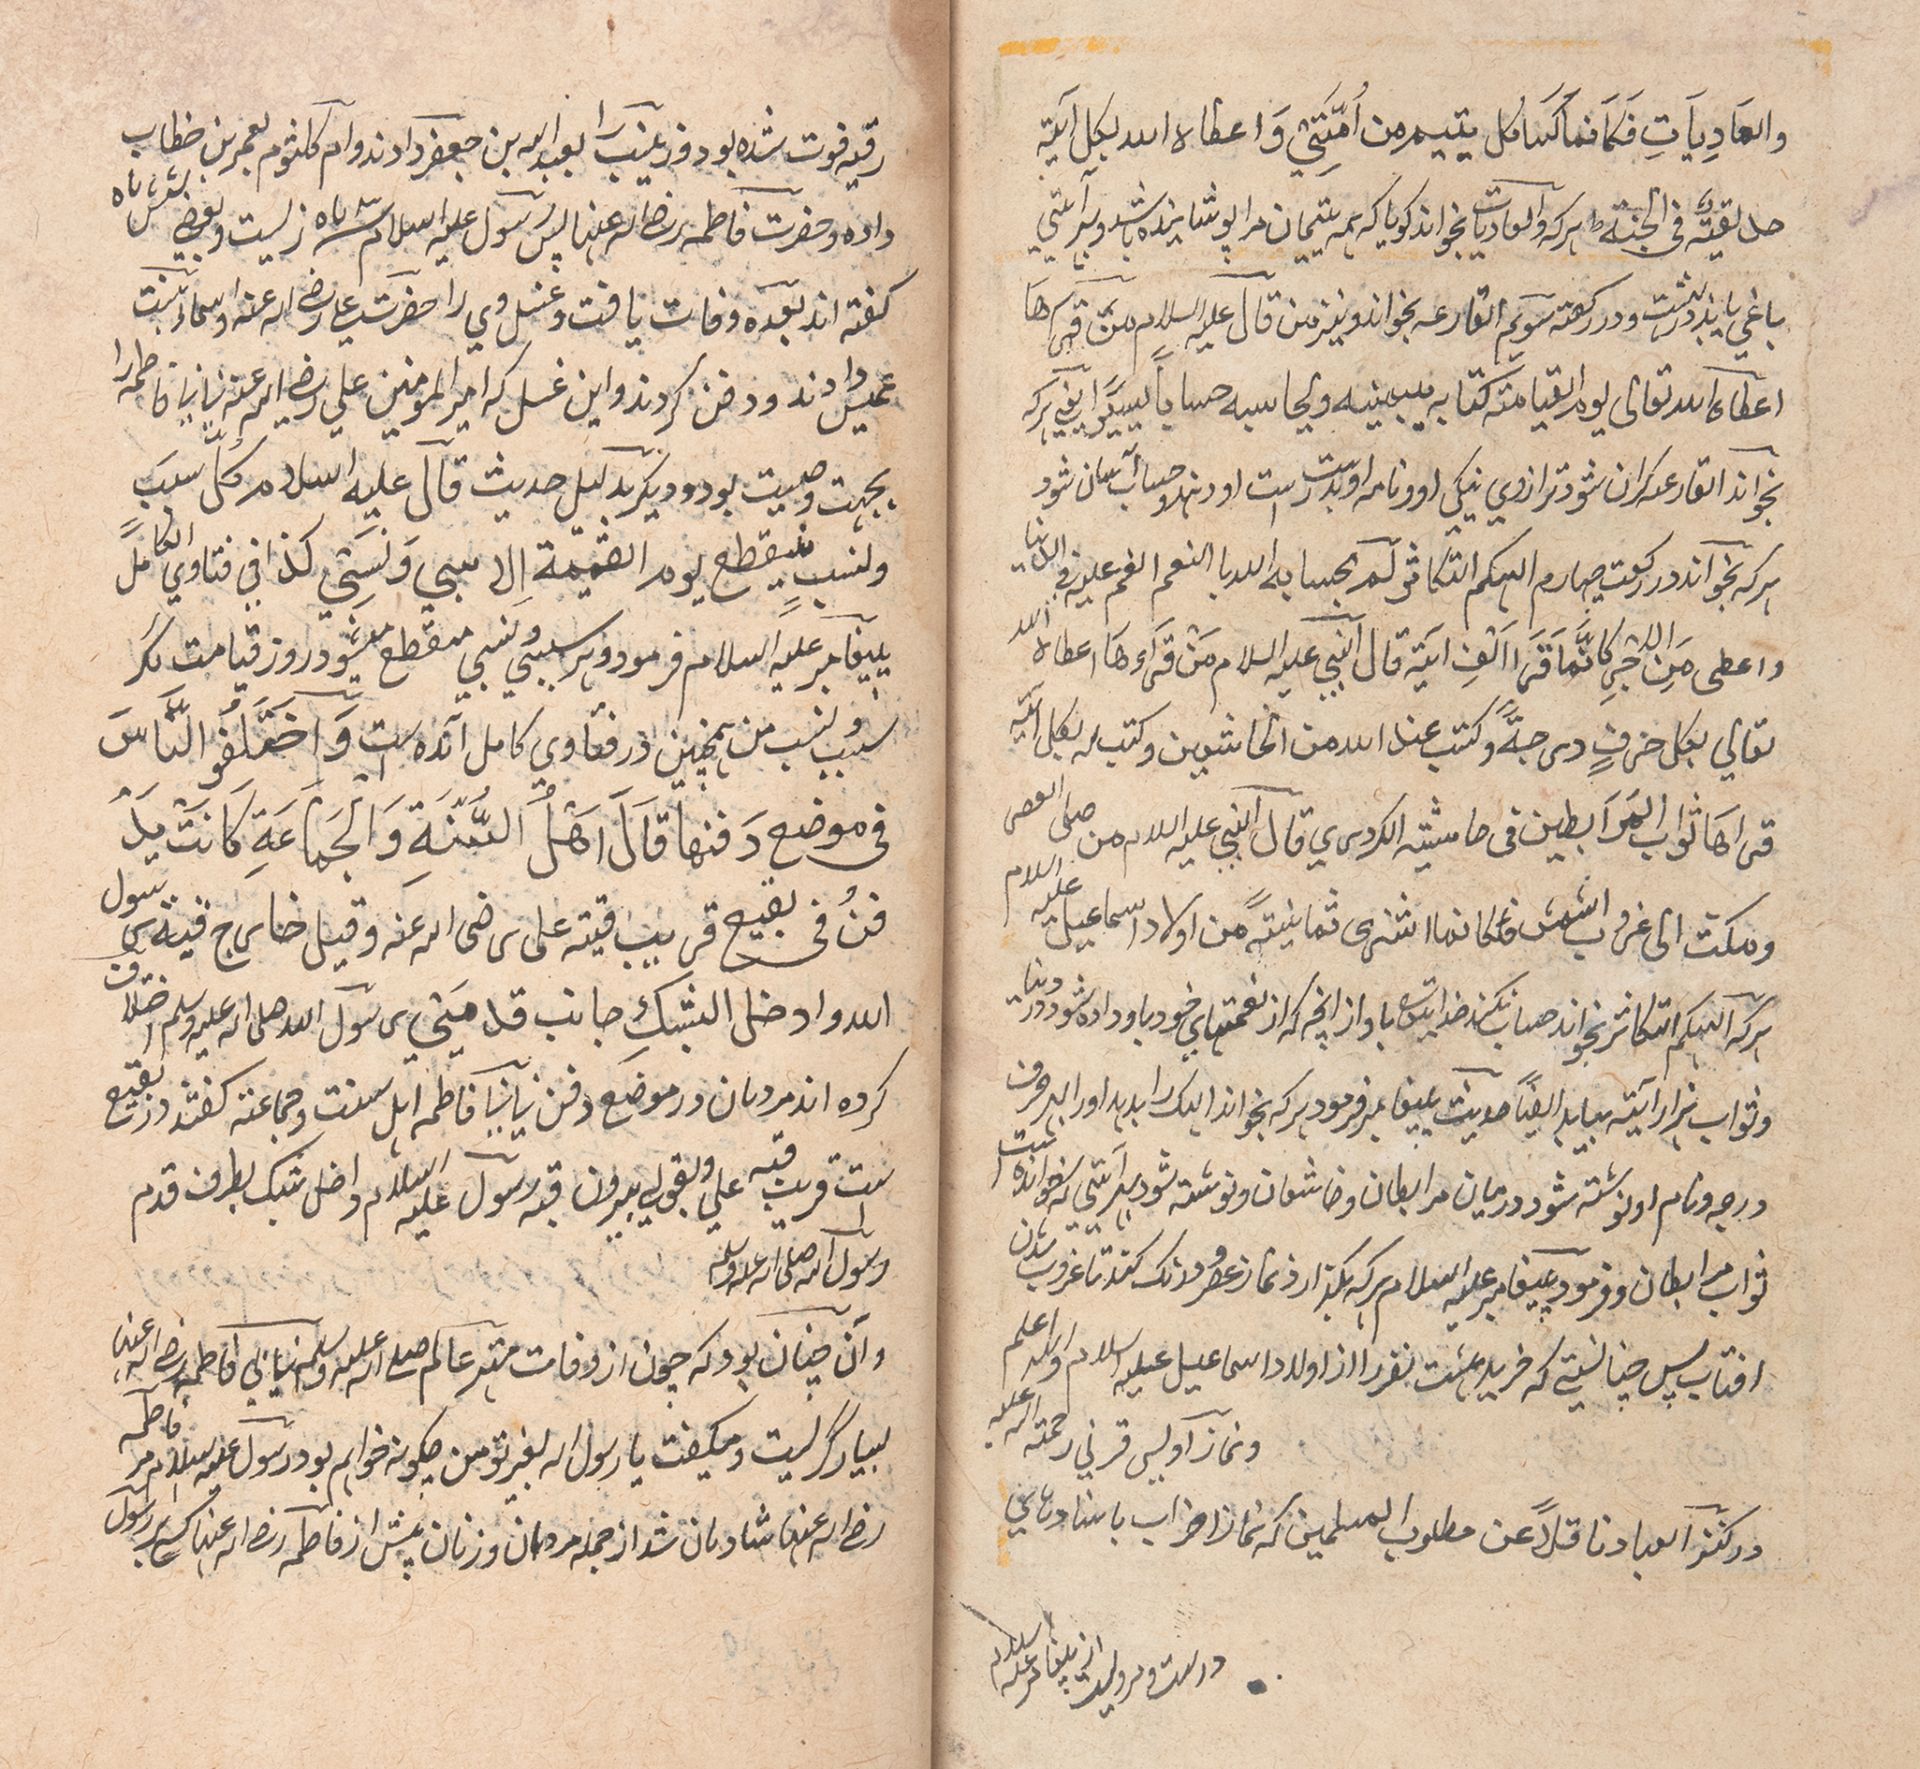 والعَادِيَاتِ فَكَاَنماَ كَسَا كل يتيم من اُمَّتِيْ وَ اعطاه الله بكل آية
حديقةً فى الجنة هركه والعاديات بخواند كويا كه همه يتيمان را پوشانيده باشد و بهر آيتي
باغي يابد در بهشت و در ركعته سوم القارعه بخواند ونيز من قال عليه السلام من قراها
اعطاه الله تعالى يوم القيامة كتابه بيمينه ويحاسبه حساباً يسيرًا يعني هركه
بخواند القارعه كران شود ترازوي نيكي او ونامه او بدست راست او دهند وحساب آسان شود
هركه بخواند در ركعت چهارم الهكم التكاثر لم يحسابه الله با النعم انعم عليه في الدنيا
واعطى من الاجرِ كانَّما قَرَاَ الْفِ اية قال النبي عليه السلام مَنْ قَرَاءهَا اعطاه الله
تعالي بكل حرفٍ درجةً وكتب عند الله من الخاشعين وكتب له بكل آية
قراها ثواب المَرَابطين فى حاشية الكردري قال النبي عليه السلام من صلى العصر
ومكث الى غروب الشمس فكانما اشترى ثمانيةً من اولاد اسماعيل عليه السلام
هركه الهكم التكاثر بخواند حساب نكند خدايتعالى باو از انچه كه از نعمتهاي خود باو داده شود در دنيا
وثواب هزار آيته بيابد ايضًا حديث پيغامبر فرمود هركه بخواند اليك را بدهد اورا بهر حرف
درجه ونام او نوشته شود درميان مرابطان وخاشعان ونوشته شود بهر آيتي كه بخوانده است
ثواب مرابطان وفرمود پيغامبر عليه السلام هركه بكذارد نماز عصر ودرنك كند تا غروب شدن
افتاب پس چنانستي كه خريد هشت نفر را از اولاد اسماعيل عليه السلام والله اعلم
ونماز آويس قرني رحمته الله عليه
در كنز العباد ناقلاً عن مطلوب المسلمين كه نماز احزاب باسنادهاي
درست ومرويست از پيغامبر عليه السلام
رقيه فوت شده بود وزينب را بعبدالله بن جعفر دادند وام كلثوم بعمر بن خطاب
داده وحضرت فاطمه رضي الله عنها پس رسول عليه السلام سه ماه زيست وبعضي شش ماه
كفته اند بعده وفات يافت وغسل وي را حضرت علي رضي الله عنه واسماء بنت
عميس دادند ودفن كردند واين غسل كه امير المومنين علي رضي الله عنه بي بي فاطمه را
بجهت وصيت بود وديكر بدليل حديث قال عليه السلام كلُّ سببَ
ونسب ينقطع يوم القيمة اِلا سببي وَنَسَبِيْ كذا في فتاوي الكامل
پيغامبر عليه السلام فرمود وهر سببي ونسبي منقطع ميشود روز قيامت مكر
سبب ونسب من همچنين در فتاوي كامل آمده ست وَ اخْتَلَفُوْ النَّاسَ
في موضع دَفنها قَالَ اَهْلُ السُّنَّةِ وَالْجَمَاعَةِ كَانَتْ يَدْ
فنُ في بقيع قريب قبة على رضى الله عنه وقيل خارج قبة رسول
الله وادخل الشبك جانب قدمَيْ رسول الله صلى الله عليه وسلم اختلاف
كرده اند مردمان در موضع دفن بي بي فاطمه اهل سنت وجماعته كفتند در بقيع
ست قريب قبه علي وبقولي بيرون قبه رسول عليه السلام داخل شبك بطرف قدم
رسول الله صلى الله عليه وسلم
وآن چنان بود كه چون از وفات مهتر عالم صلى الله عليه وسلم بي بي فاطمه رضي الله عنها
بسيار گريست وميكفت يا رسول الله بغير تو من چكونه خواهم بود رسول عليه السلام مر فاطمه
رضي الله عنها شادمان شد از جمله مردمان وزنان پيش از فاطمه رضي الله عنها كسي بر رسول